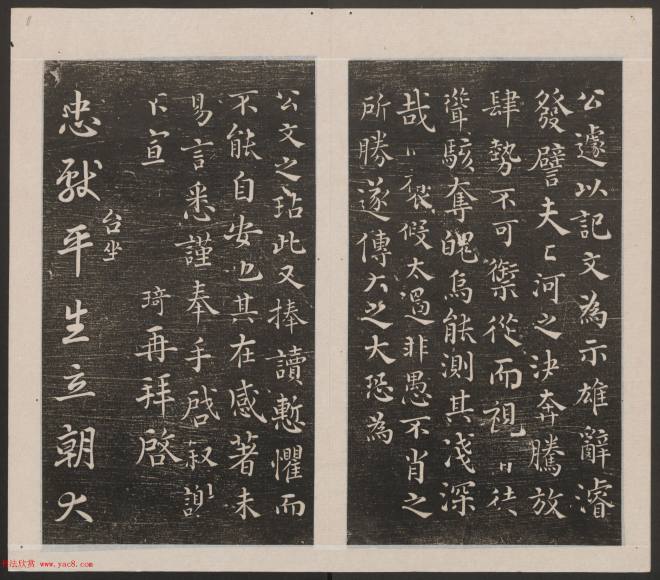 公遽以記文為示雄辭濬
發譬夫江河之決奔騰放
肆勢不可禦從而視者徒
聳駭奪魄烏能測其淺深
哉但褒假太過非愚不肖之
所勝遂傳大之大恐為
公文之玷此又捧讀慙懼而
不能自安也其在感著未
易言悉謹奉手啓叙謝
不宣
琦再拜啓
台坐
忠獻平生立朝大
书法欣赏 www.yac8.com